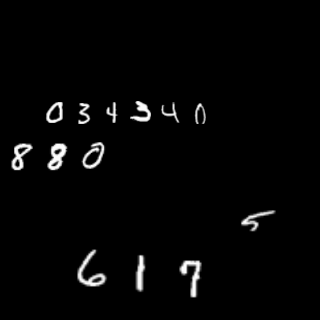 034340
880
5
617